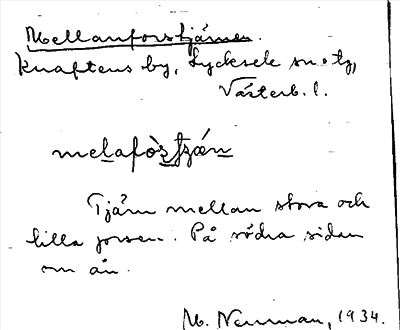 Mellanforstjärnen.
Knaftens by, Lycksele sn. o. tg,
Västerb. l.
melafòrstjæn
Tjärn mellan stora och
lilla forsen. På södra sidan
om ån.
M. Neuman, 1934.